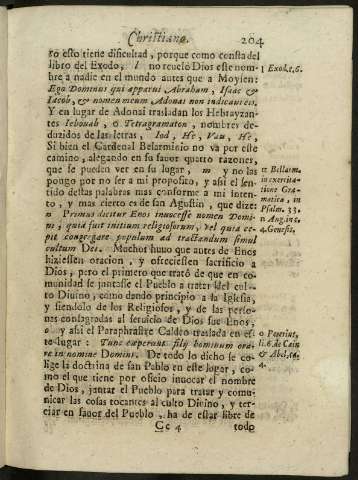 Christiano. 204
ro esto tiene dificultad, porque como consta del
libro del Exodo, l no reuelò Dios este nom-
bre a nadie en el mundo antes que a Moysen:
Ego Dominus qui apparui Abraham, Isaac &
Iacob, & nomen meum Adonai non indicaui eis.
Y en lugar de Adonai trasladan los Hebrayzan-
tes Iehouah, ò Tetragramaton, nombres de-
duzidos de las letras, Iod, He, Vau, He,
Si bien el Cardenal Belarminio no va por este
camino, alegando en su fauor quatro razones,
que se pueden ver en su lugar, m y no las
pongo por no ser a mi proposito, y asi el sen-
tido destas palabras mas conforme a mi inten-
to, y mas cierto es de san Agustin, que dize:
n Primus dicitur Enos inuocasse nomen Domi-
ni, quia fuit initium religiosorum, vel quia ce-
pit congregare populum ad tractandum simul
cultum Dei. Muchos huuo que antes de Enos
hiziessen oracion, y ofreciessen sacrificio a
Dios, pero el primero que tratò de que en co-
munidad se juntasse el Pueblo a tratar del cul-
to Diuino, como dando principio a la Iglesia,
y siendolo de los Religiosos, y de las perso-
nas consagradas al seruicio de Dios fue Enos,
o y asi el Paraphraste Caldeo traslada en es-
te lugar: Tunc cæperunt filij hominum ora-
re in nomine Domini. De todo lo dicho se co
lige la doctrina de san Pablo en este logar, co-
mo el que tiene por oficio inuocar el nombre
de Dios, juntar el Pueblo para tratar y comu-
nicar las cosas tocantes al culto Diuino, y ter-
ciar en fauor del Pueblo, ha de estar libre de
Cc 4 todo
l Exod.c.6.
m Bellarm.
in exercita-
tione Gra-
matica, in
Psalm. 33.
n Aug. in c.
4. Genesis.
o Pererius,
li. 6. de Cain
& Abel, in c.
4.